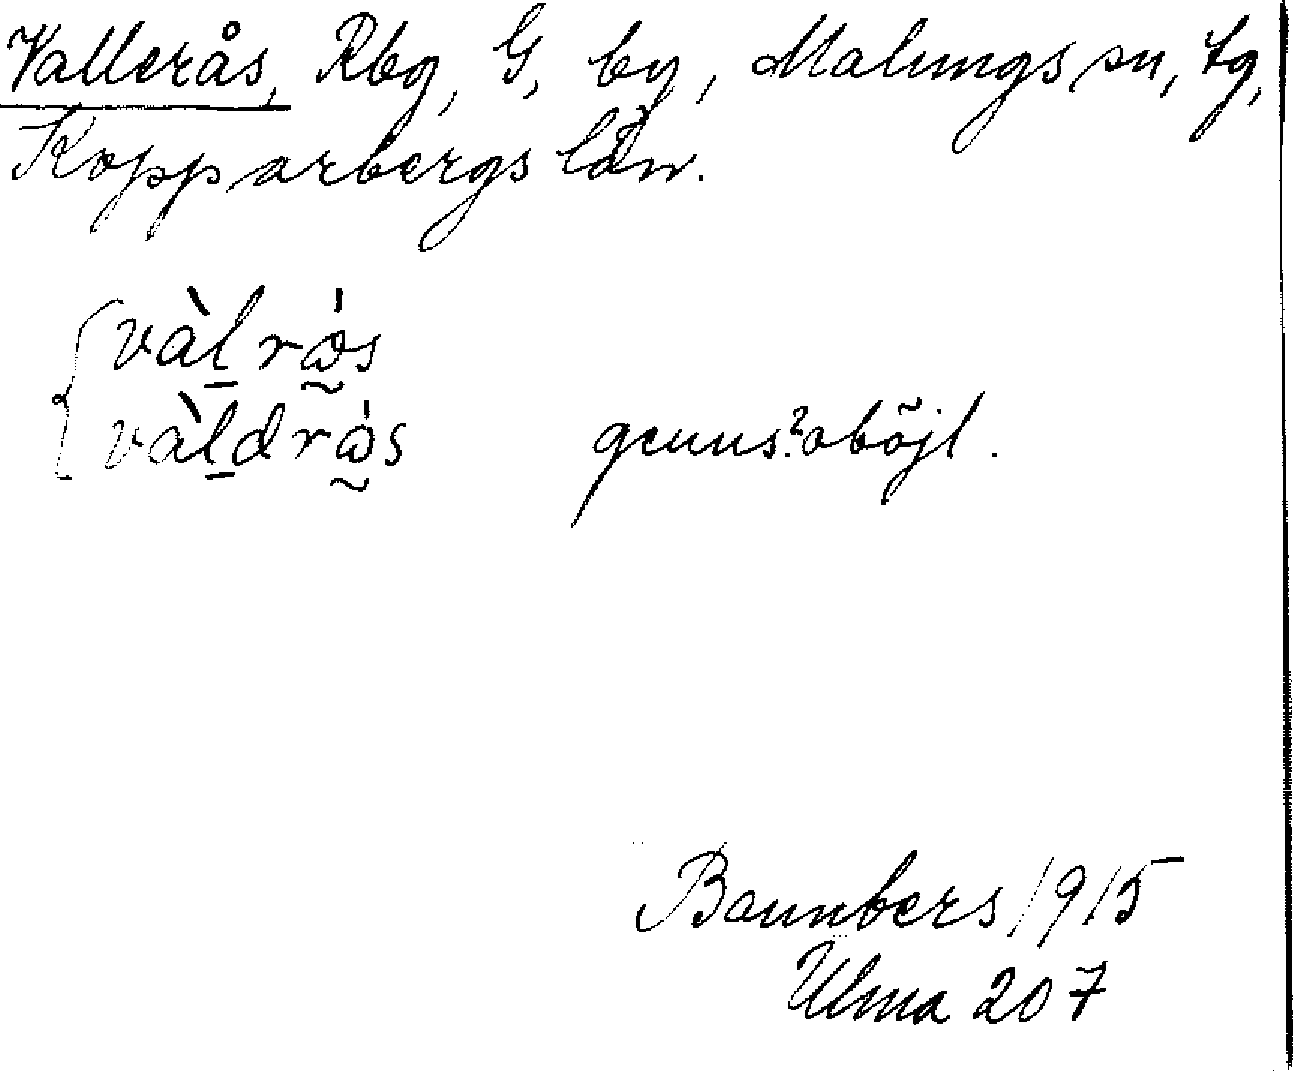 Vallerås, Rbg, G, by, Malungs sn, tg,
Kopparbergs län.
vàl̲ rώ̰s
vàl̲drώ̰s genus? oböjl.
Bannbers 1915
Ulma 207